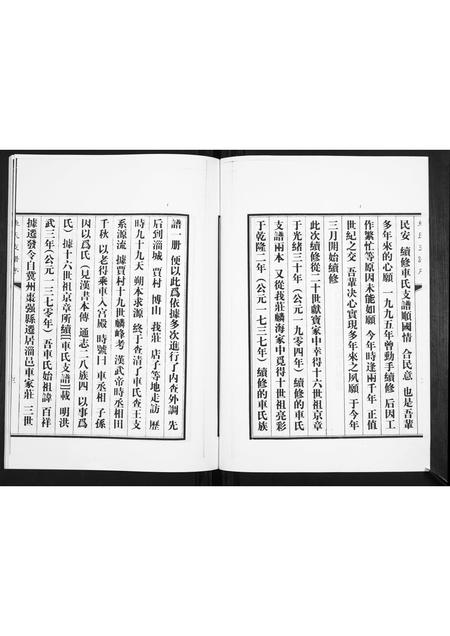 民安 續修車氏支譜順國情 合民意 也是吾輩
多年來的心願 一九九五年曾動手續修 后因工
作繁忙等原因未能如願 今年時逢兩千年 正值
世紀之交 吾輩决心實現多年來之夙願 于今年
三月開始續修
此次續修從二十世獻寶家中幸得十六世祖京章
于光緒三十年（公元一九零四年）續修的車氏
支譜兩本 又從我莊麟海家中覓得十世祖亮彩
于乾隆二年（公元一七三七年）續修的車氏族
譜一册 便以此爲依據多次進行了内查外調 先
后到淄城 賈村 博山 我莊 店子等地走訪 歷
時九十九天 朔本求源 終于查清了車氏查王支
系源流 據賈村十九世麟峰考 漢武帝時丞相田
千秋 以老得乘車入宮殿 時號曰 車丞相 子孫
因以爲氏（見漢書本傳 通志二八族四 以事爲
氏）據十六世祖京章所續《車氏支譜》載 明洪
武三年（公元一三七零年）吾車氏始祖諱 百祥
據遷發令自冀州棗强縣遷居淄邑車家莊 三世